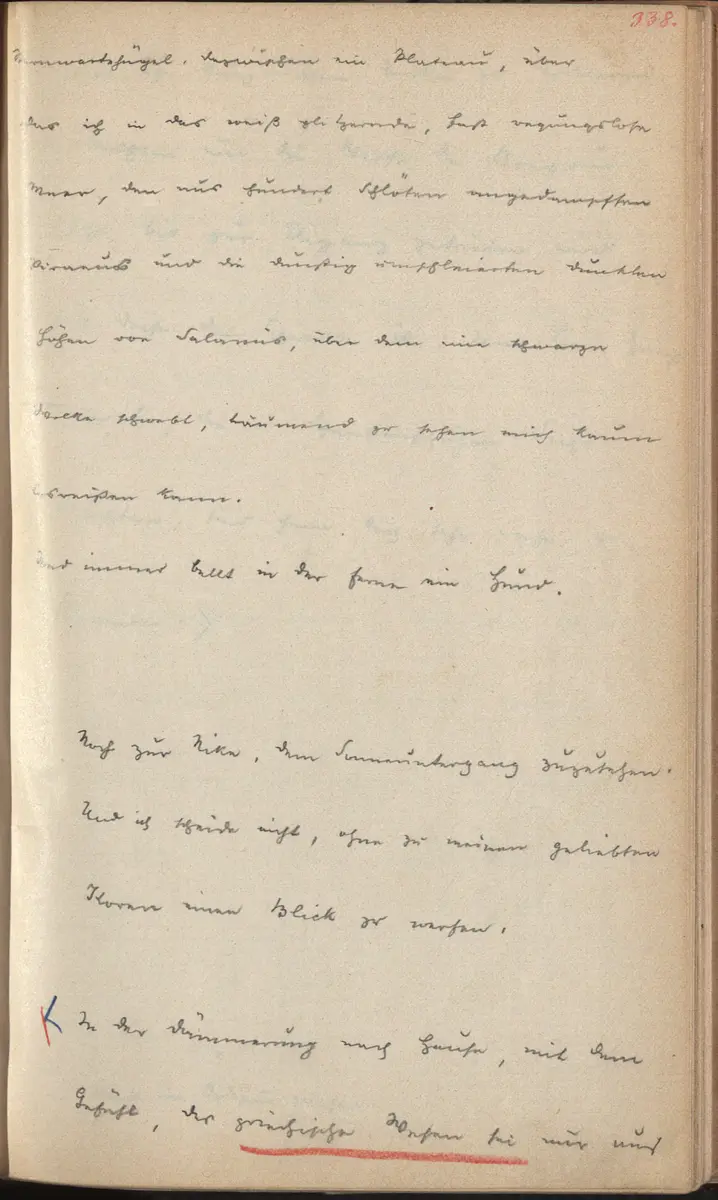 338.
Sternwartshügel. dazwischen ein Plateau, über
das ich in das weiß glitzernde, fast regungslose
Meer, den aus hundert Schlöten angedampften
Piraeus und die dunstig umschleierten dunklen
Höhen von Salamis, über dem eine schwarze
Wolke schwebt, träumend zu sehen mich kaum
losreißen kann.
Und immer bellt in der Ferne ein Hund.
Noch zur Nike, dem Sonnenuntergang zuzusehen.
Und ich scheide nicht, ohne zu meinen geliebten
Koren einen Blick zu werfen.
In der Dämmerung nach Hause, mit dem
Gefühl, das griechische Wesen sei mir nun